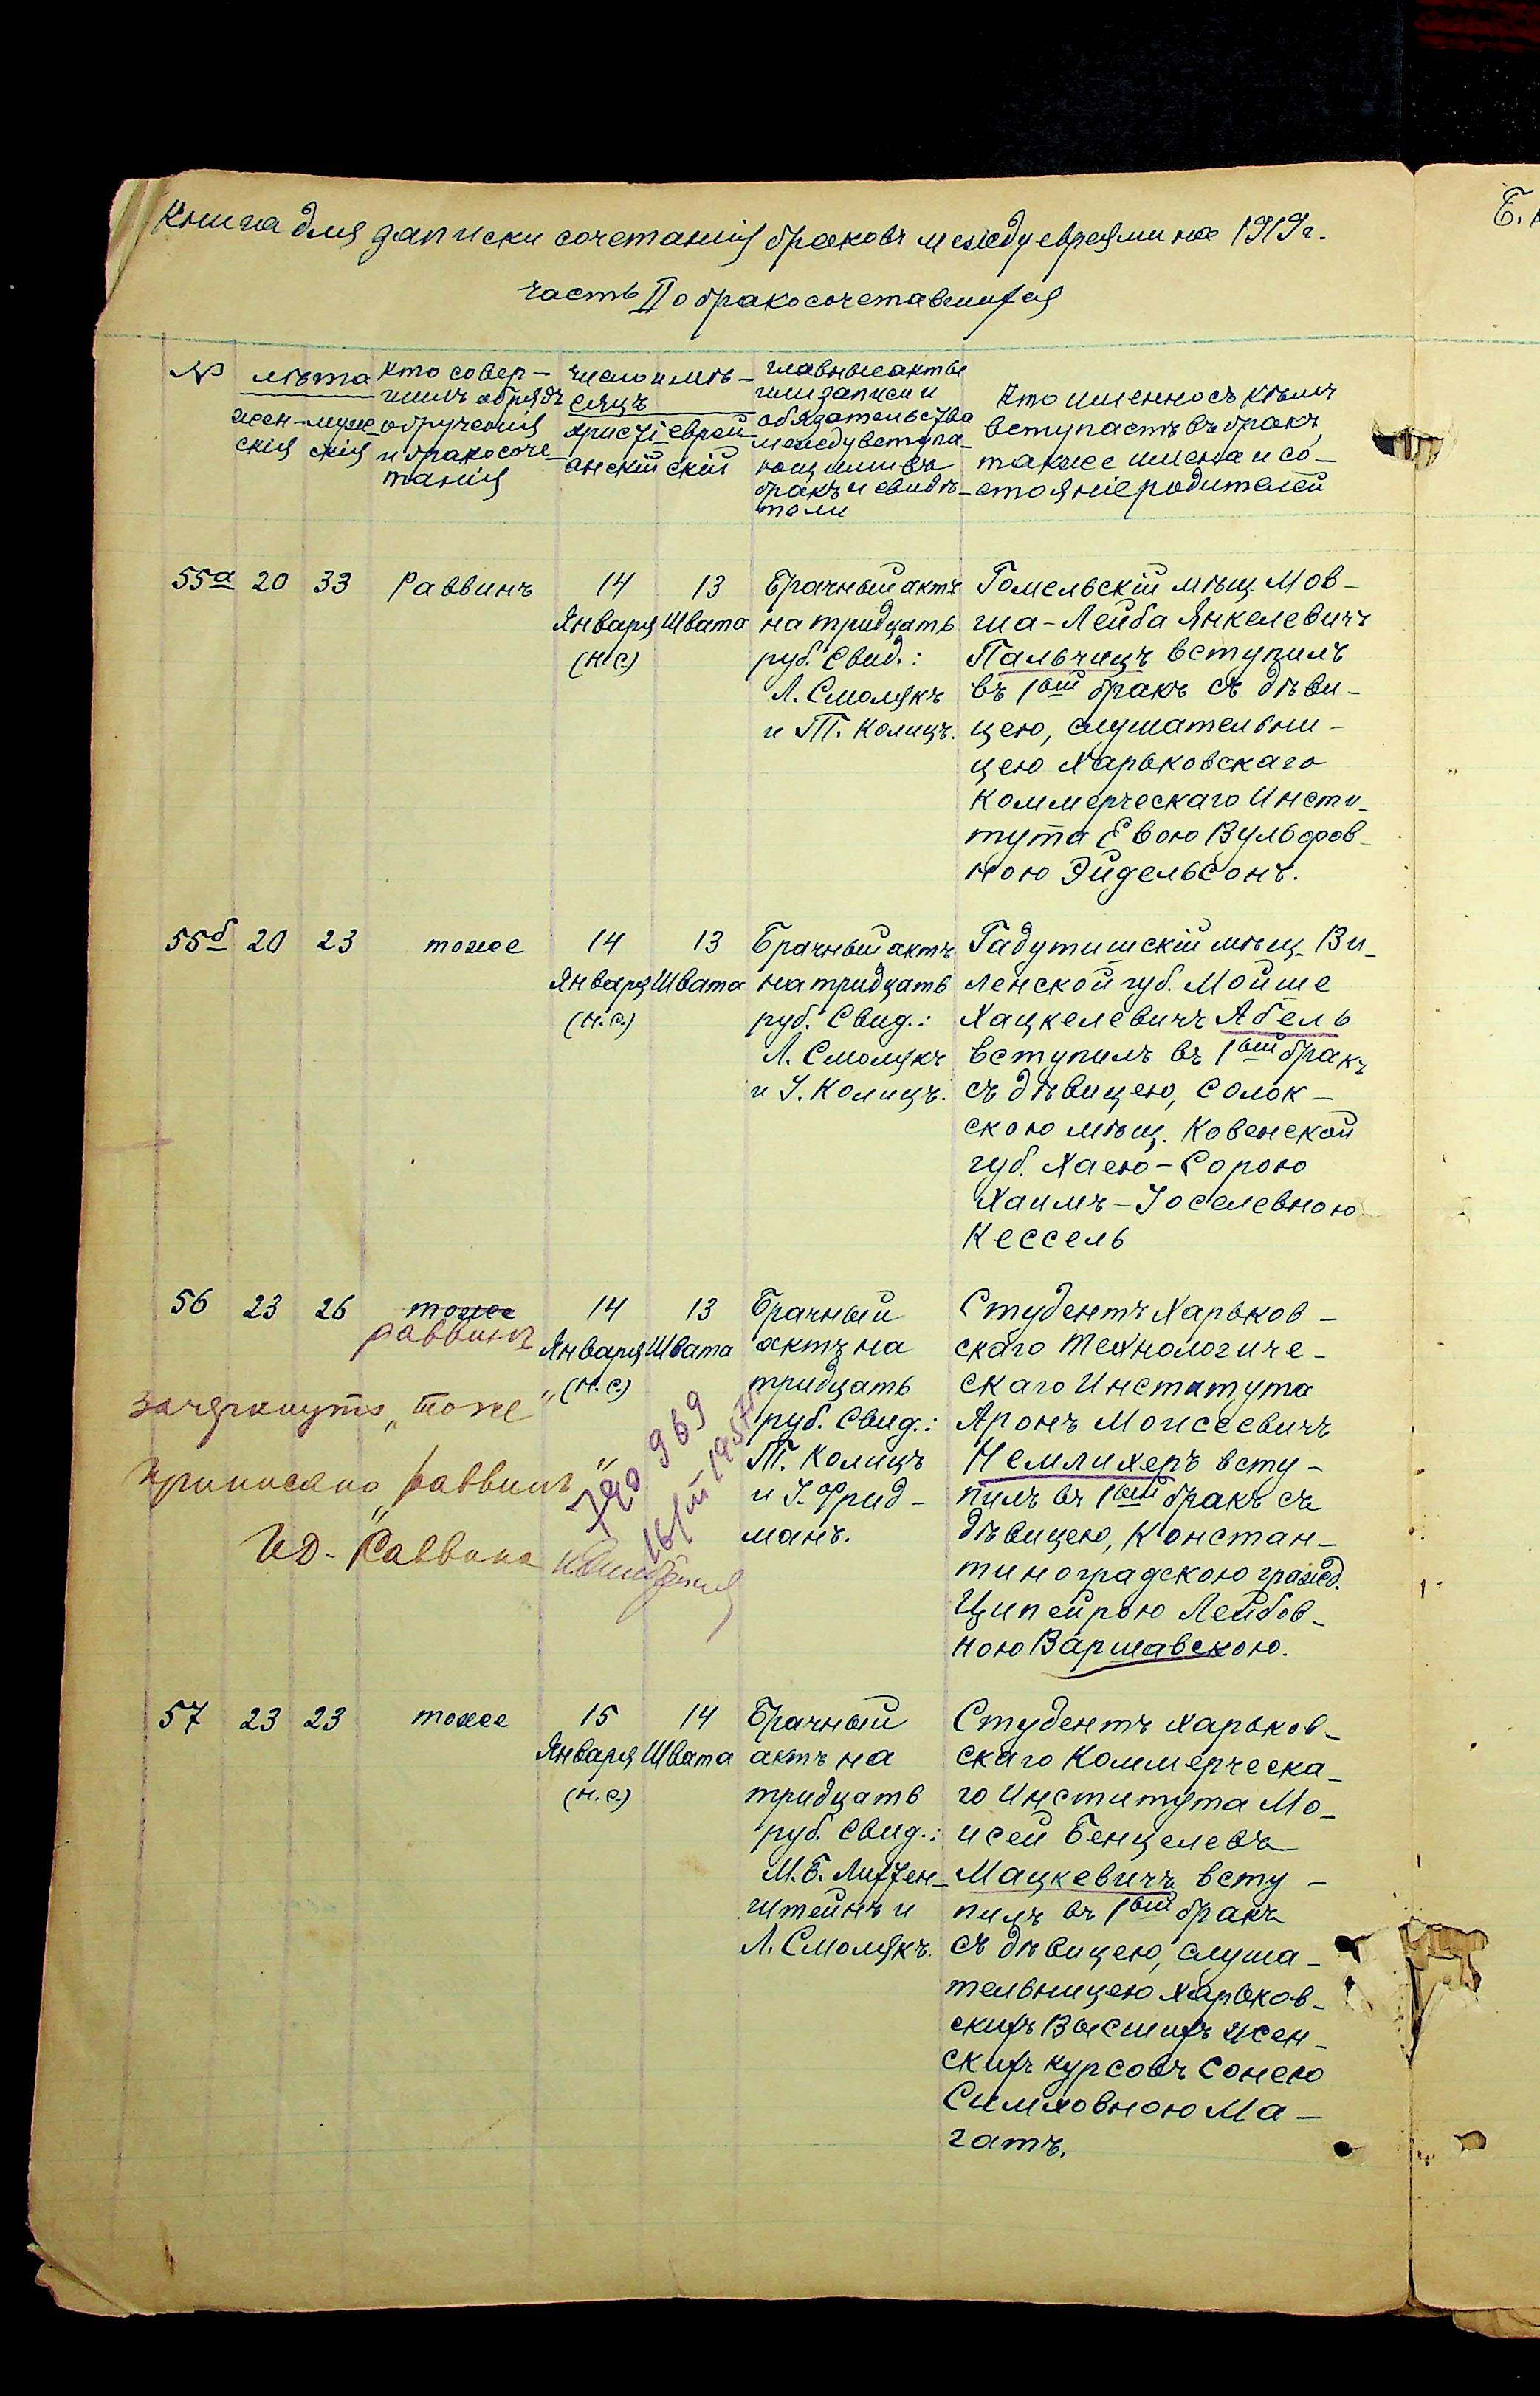 Книга для записки сочетанія браковъ между евреями на 1919 г.
часть II о бракосочетавшихся
№
лѣта
жен-
скія
муж-
скія
кто совер-
шилъ обрядъ
обрученія
и бракосоче-
танія
число и мѣ-
сяцъ
христі-
анскій
еврей-
скій
главные акты
или записи и
обязательства
между вступа-
ющими въ
бракъ и свидѣ-
тели
Кто именно съ кѣмъ
вступаетъ въ бракъ,
также имена и со-
стояніе родителей
55а 20 33 Раввинъ
14
Января
(н.с.)
13
Швата
Брачный актъ
на тридцать
руб. Свид.:
Л. Смолякъ
и Т. Колицъ.
Гомельскій мѣщ. Мов-
ша-Лейба Янкелевичъ
Пальчицъ вступилъ
въ 1ый бракъ съ дѣви-
цею, слушательни-
цею Харьковскаго
Коммерческаго Инсти-
тута Евою Вульфов-
ною Эйдельсонъ.
55б 20 23 тоже
14
Января
(н.с.)
13
Швата
Брачный актъ
на тридцать
руб. Свид.:
Л. Смолякъ
и І. Колицъ.
Гадутишскій мѣщ. Ви-
ленской губ. Мойше
Хацкелевичъ Абель
вступилъ въ 1ый бракъ
съ дѣвицею, Солок-
скою мѣщ. Ковенской
губ. Хаею-Сорою
Хаимъ-Іоселевною
Кессель
56 23 26 тоже
раввинъ
14
Января
(н.с.)
13
Швата
Брачный
актъ на
тридцать
руб. Свид.:
Т. Колицъ
и І. Фрид-
манъ.
Студентъ Харьков-
скаго Технологиче-
скаго Института
Аронъ Моисеевичъ
Немлихеръ всту-
пилъ въ 1ый бракъ съ
дѣвицею, Констан-
тиноградскою гражд.
Ципейрою Лейбов-
ною Варшавскою.
зачеркнуто „тоже“
приписано „раввинъ“
ИД. Раввина
790969
16/III 1957
57 23 23 тоже
15
Января
(н.с.)
14
Швата
Брачный
актъ на
тридцать
руб. Свид.:
М. Б. Лихтен-
штейнъ и
Л. Смолякъ.
Студентъ Харьков-
скаго Коммерческа-
го Института Мо-
исей Бенцелевъ
Мацкевичъ всту-
пилъ въ 1ый бракъ
съ дѣвицею, слуша-
тельницею Харьков-
скихъ Высшихъ Жен-
скихъ курсовъ Сонею
Симховною Ма-
гатъ.